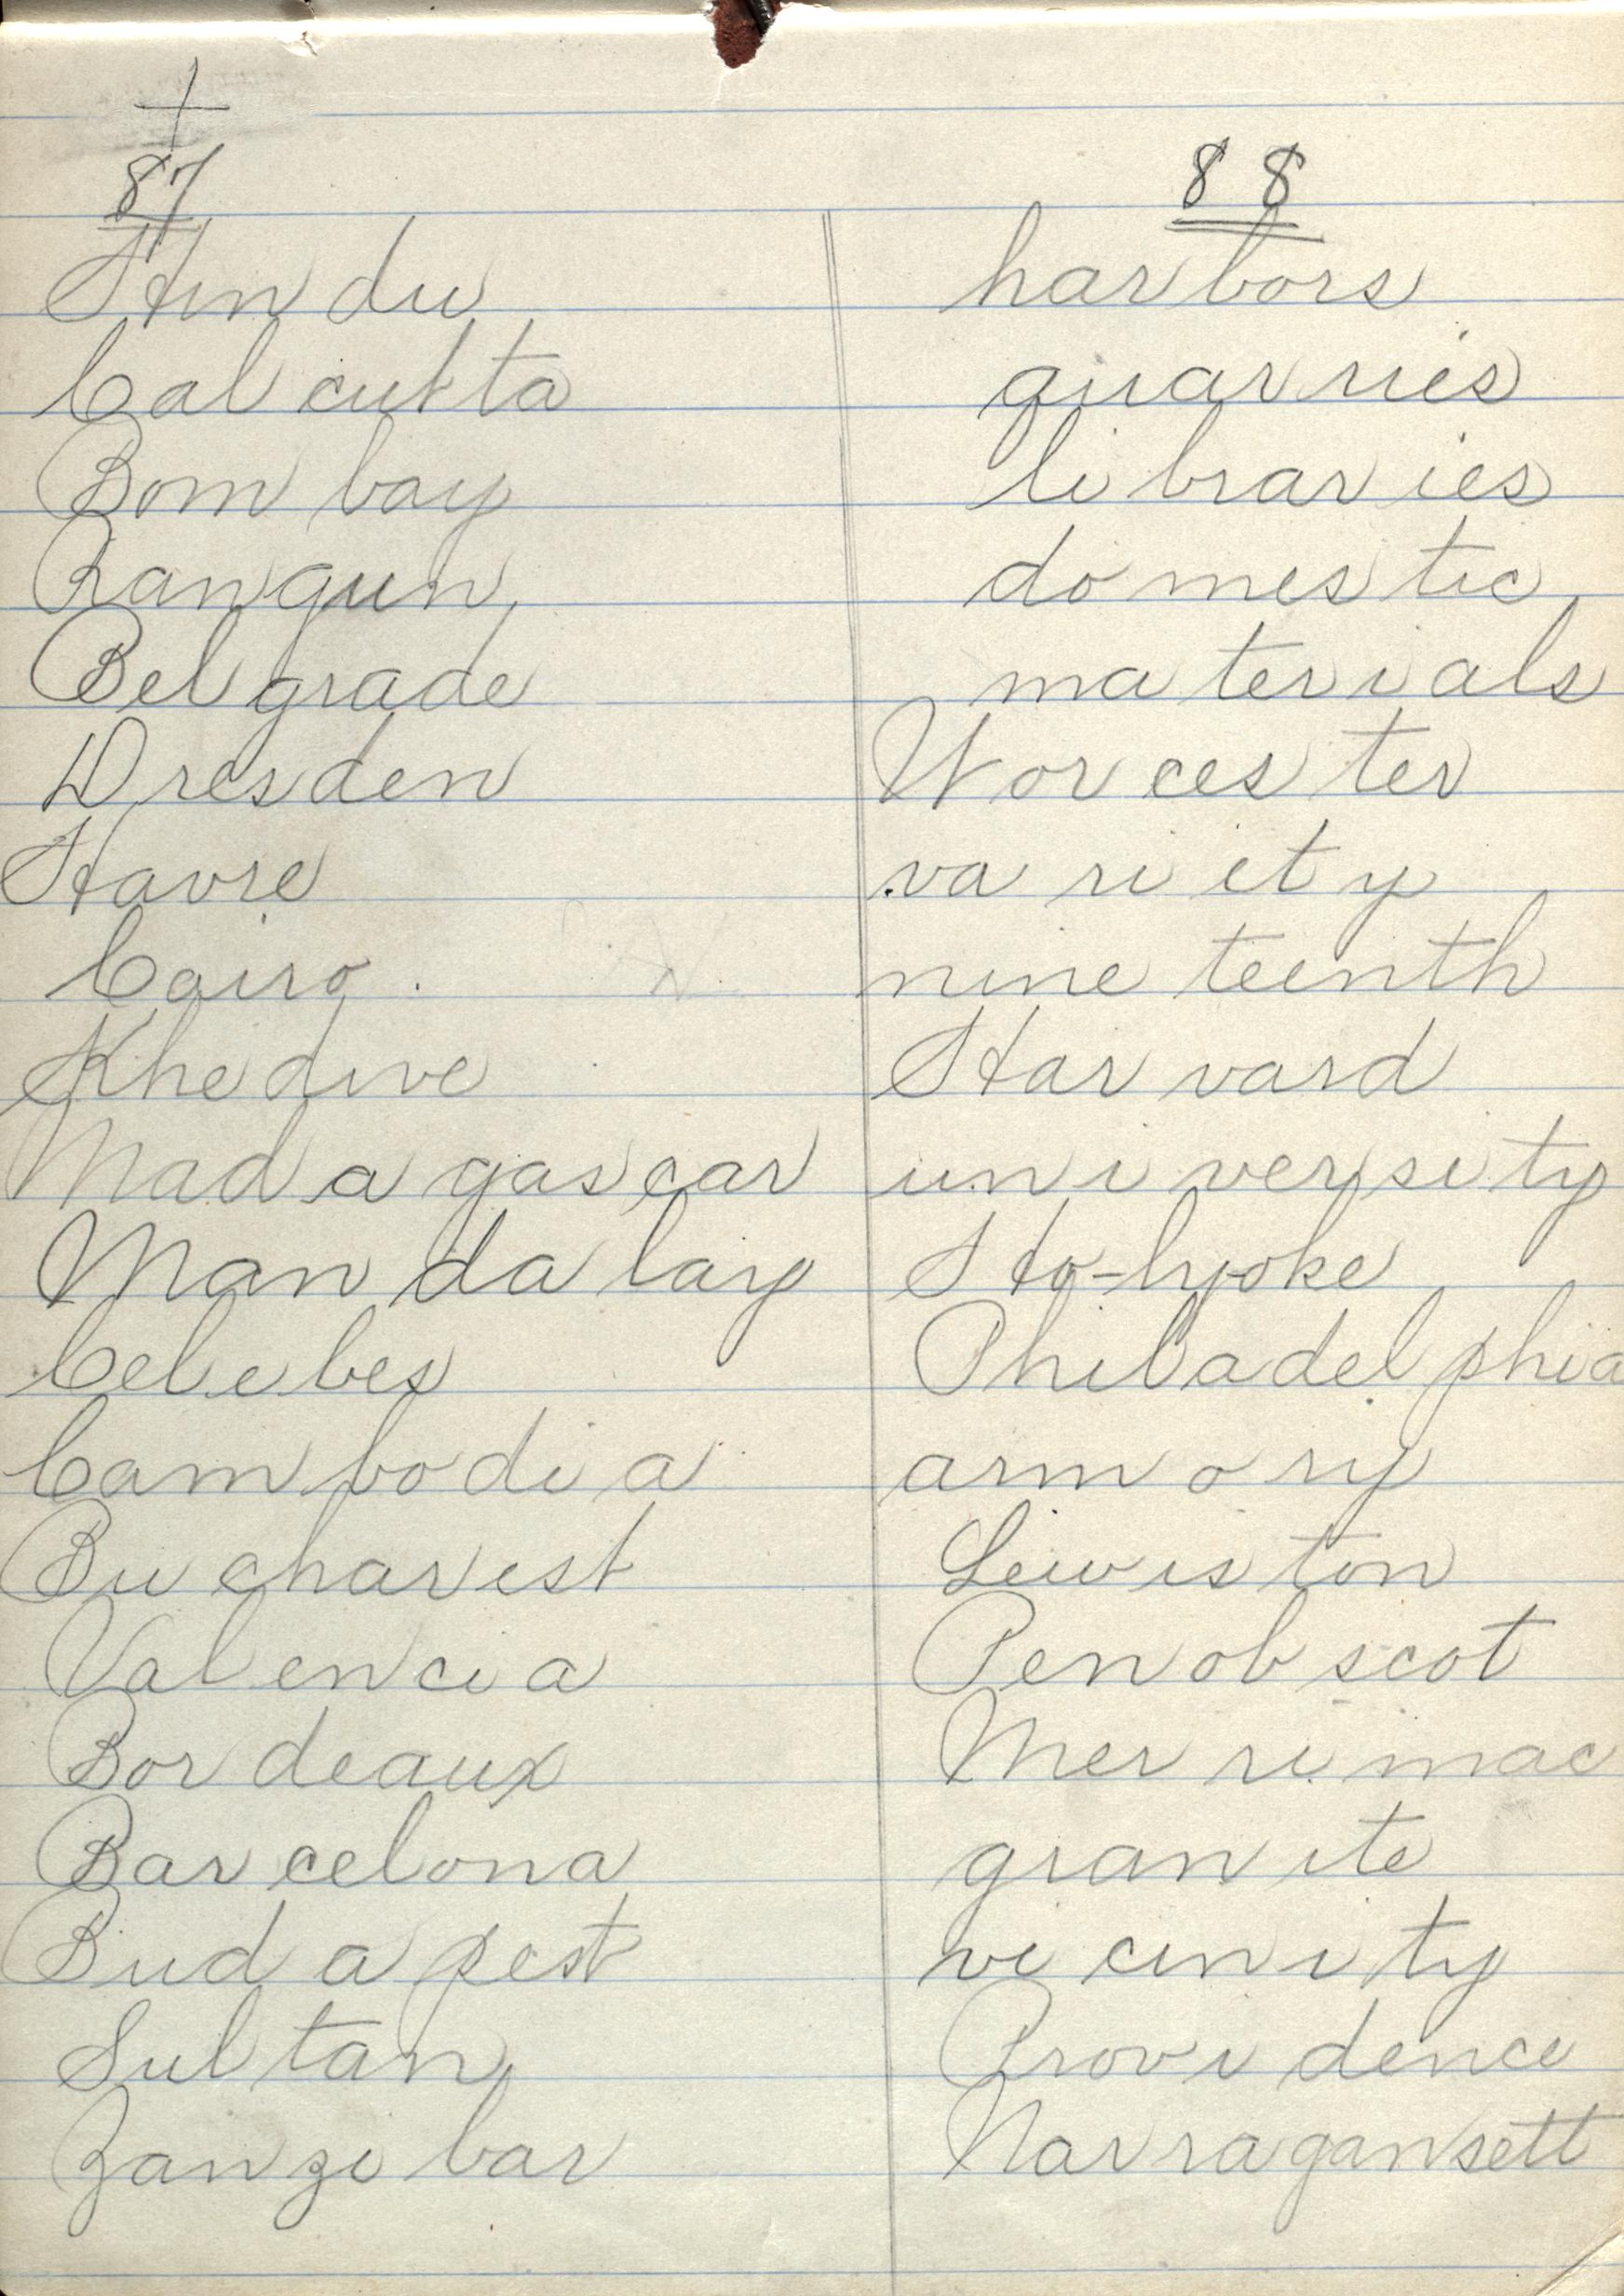 87
Hin du
Cal cut ta
Bom bay
Rangun
Bel grade
Dres den
Havre
Cairo.
Khe dive
Mad a gas car
Man da lay
Cel e bes
Cam bo di a
Bu char est
Val en ci a
Bor deaux
Bar cel ona
Bud a pest
Sul tan
Zan zi bar
88
har bors
quar ries
li brar ies
do mes tic
ma ter i als
Wor ces ter
va ri et y
nine teenth
Har vard
un i ver si ty
Ho-ly-oke
Phil a del phia
arm o ry
Lew is ton
Pen ob scot
Mer ri mac
gran ite
vi cin i ty
Prov i dence
Nar ra gan sett